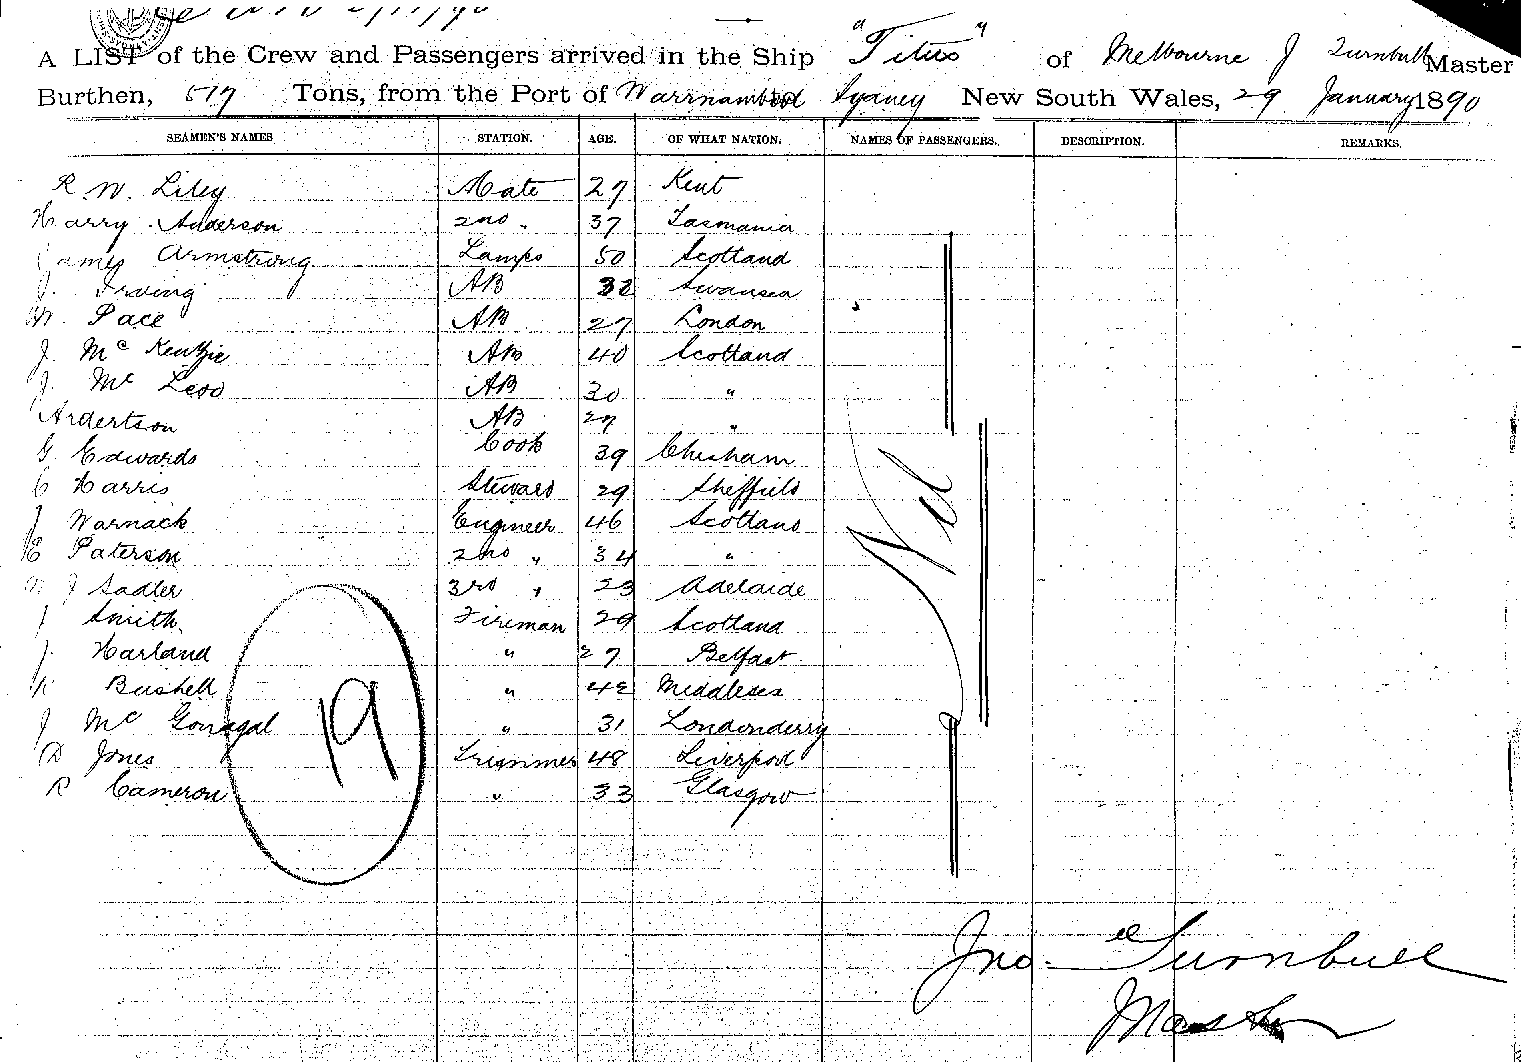 A LIST of the Crew and Passengers arrived in the Ship "Titus" of Melbourne J Turnbull Master
Burthen, 519 Tons, from the Port of Warrnambool to Sydney New South Wales, 29 January 1890
SEAMEN'S NAMES STATION. AGE. OF WHAT NATION. NAMES OF PASSENGERS. DESCRIPTION. REMARKS.
R. W. Liley Mate 27 Kent
Harry Anderson 2nd " 37 Tasmania
James Armstrong Lamps 50 Scotland
J. Irving AB 32 Swansea
W. Pace AB 27 London
J. Mc Kenzie AB 40 Scotland
J. Mc Leod AB 30 "
Ardertson AB 27 "
G Edwards Cook 39 Chesham
C Harris Steward 29 Sheffield
J Warnack Engineer 46 Scotland
E Paterson 2nd " 34 "
W J Sadler 3rd " 23 Adelaide
J Smith Fireman 29 Scotland
J. Harland " 27 Belfast
W Bushell " 42 Middlesex
J Mc Gonagal " 31 Londonderry
D Jones Trimmer 48 Liverpool
R Cameron " 33 Glasgow
19
Nil
Jno. Turnbull
Master